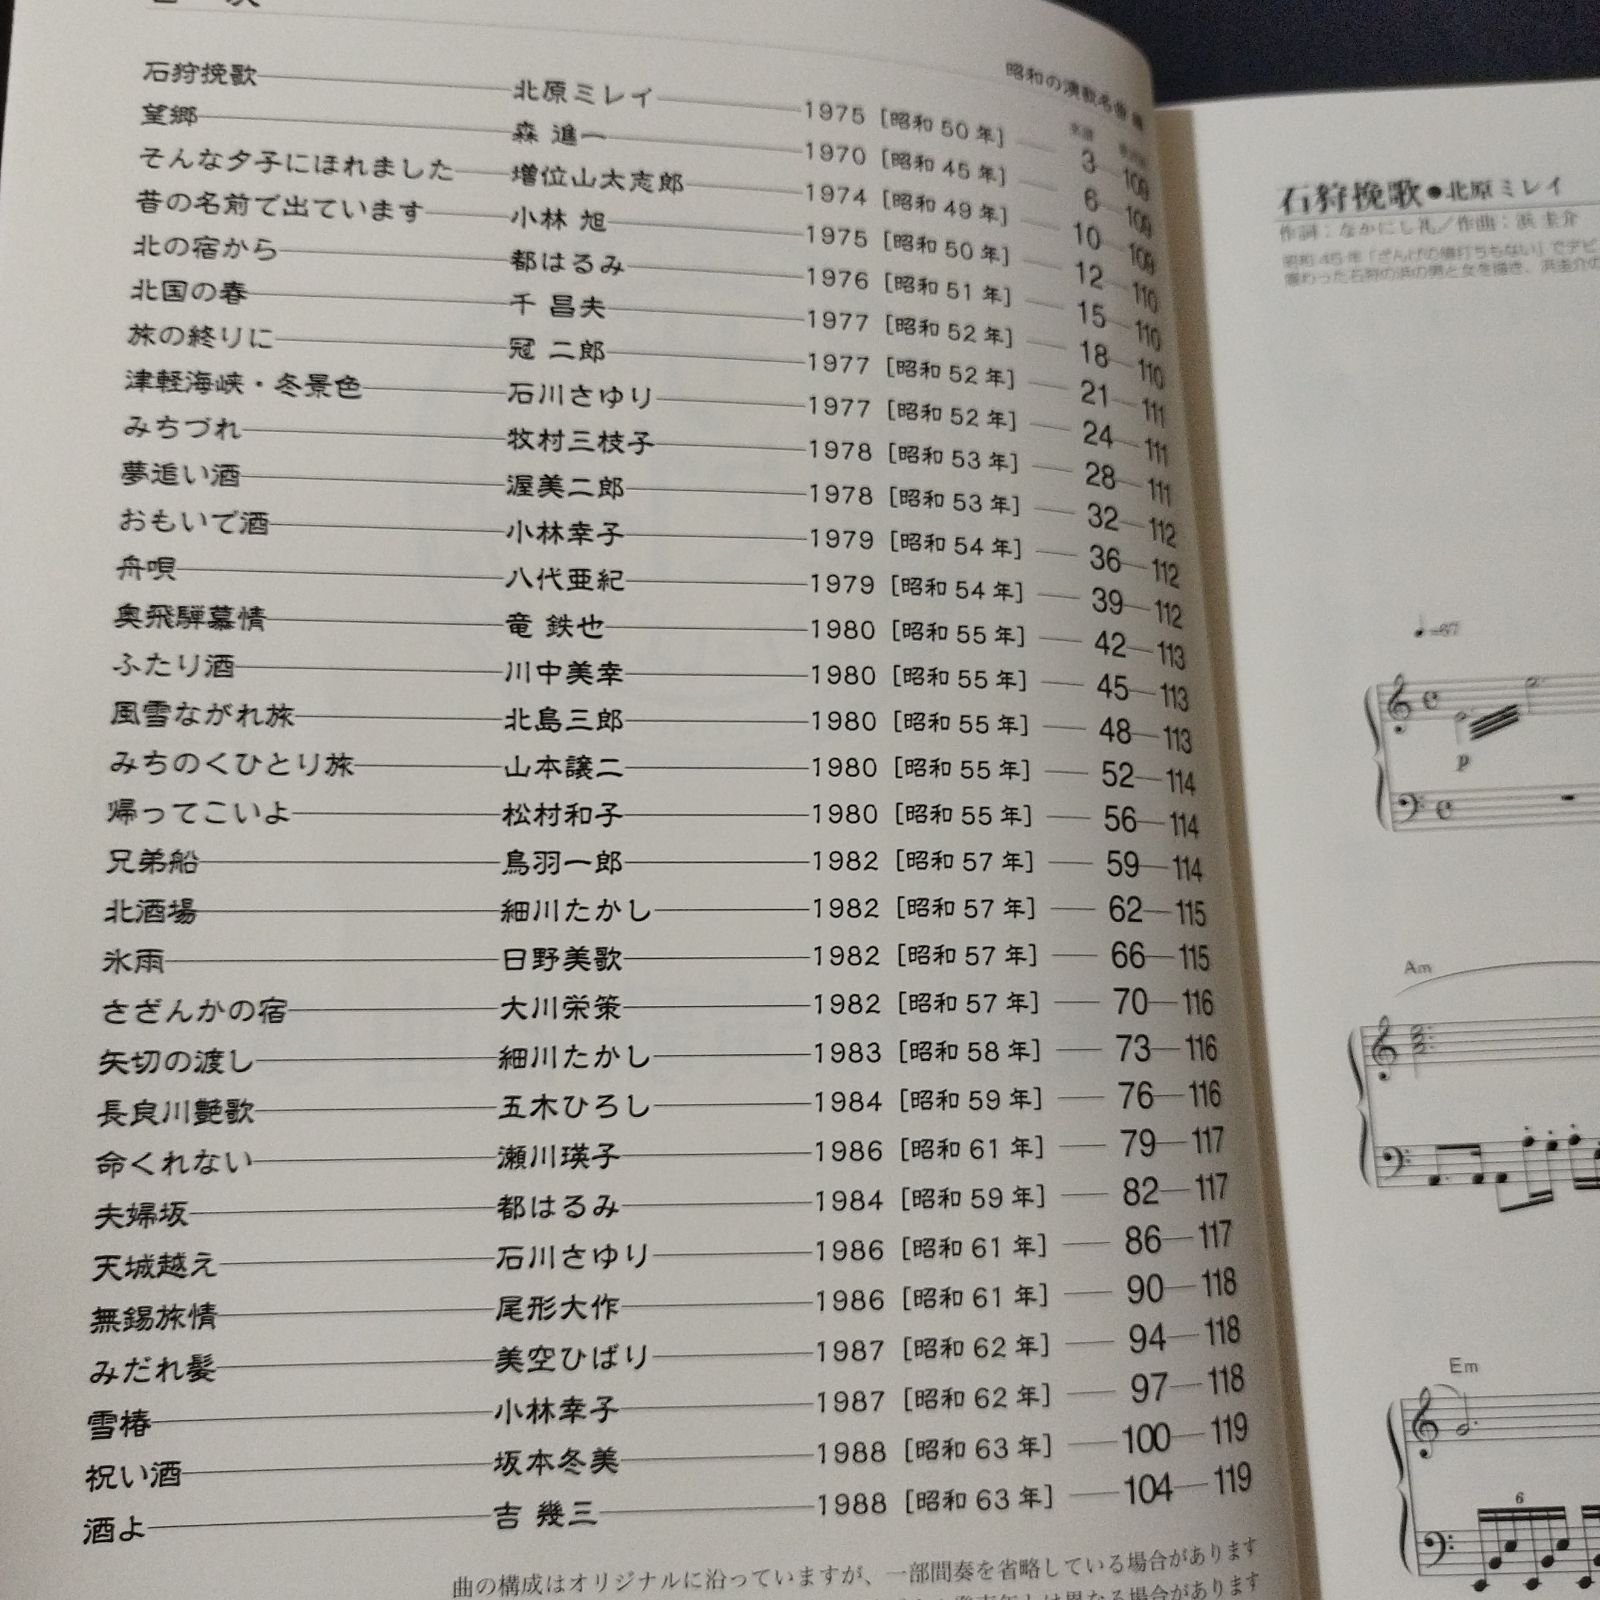 昭和の演歌名曲
石狩挽歌 北原ミレイ 1975 [昭和 50 年] 3 109
望郷 森 進一 1970 [昭和 45 年] 6 109
そんな夕子にほれました 増位山太志郎 1974 [昭和 49 年] 10 109
昔の名前で出ています 小林 旭 1975 [昭和 50 年] 12 110
北の宿から 都はるみ 1976 [昭和 51 年] 15 110
北国の春 千 昌夫 1977 [昭和 52 年] 18 110
旅の終りに 冠 二郎 1977 [昭和 52 年] 21 111
津軽海峡・冬景色 石川さゆり 1977 [昭和 52 年] 24 111
みちづれ 牧村三枝子 1978 [昭和 53 年] 28 111
夢追い酒 渥美二郎 1978 [昭和 53 年] 32 112
おもいで酒 小林幸子 1979 [昭和 54 年] 36 112
舟唄 八代亜紀 1979 [昭和 54 年] 39 112
奥飛騨慕情 竜 鉄也 1980 [昭和 55 年] 42 113
ふたり酒 川中美幸 1980 [昭和 55 年] 45 113
風雪ながれ旅 北島三郎 1980 [昭和 55 年] 48 113
みちのくひとり旅 山本譲二 1980 [昭和 55 年] 52 114
帰ってこいよ 松村和子 1980 [昭和 55 年] 56 114
兄弟船 鳥羽一郎 1982 [昭和 57 年] 59 114
北酒場 細川たかし 1982 [昭和 57 年] 62 115
氷雨 日野美歌 1982 [昭和 57 年] 66 115
さざんかの宿 大川栄策 1982 [昭和 57 年] 70 116
矢切の渡し 細川たかし 1983 [昭和 58 年] 73 116
長良川艶歌 五木ひろし 1984 [昭和 59 年] 76 116
命くれない 瀬川瑛子 1986 [昭和 61 年] 79 117
夫婦坂 都はるみ 1984 [昭和 59 年] 82 117
天城越え 石川さゆり 1986 [昭和 61 年] 86 117
無錫旅情 尾形大作 1986 [昭和 61 年] 90 118
みだれ髪 美空ひばり 1987 [昭和 62 年] 94 118
雪椿 小林幸子 1987 [昭和 62 年] 97 118
祝い酒 坂本冬美 1988 [昭和 63 年] 100 119
酒よ 吉 幾三 1988 [昭和 63 年] 104 119
曲の構成はオリジナルに沿っていますが、一部間奏を省略している場合があります
は異なる場合があります
石狩挽歌●北原ミレイ
作詞：なかにし礼／作曲：浜 圭介
昭和 45 年「ざんげの値打ちもない」でデビ
賑わった石狩の浜の男と女を描き、浜圭介の
♩=67
p
Am
Em
6